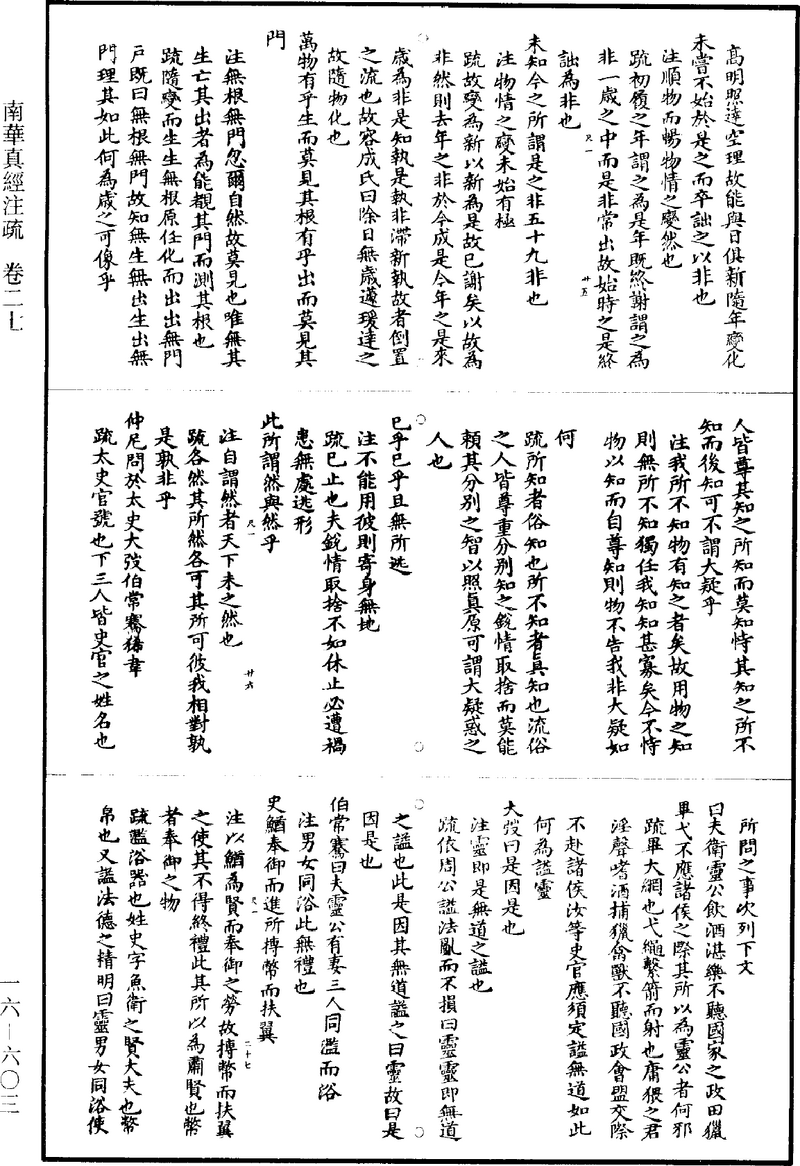 高明照達空理故能與日俱新隨年變化
未嘗不始於是之而卒詘之以非也
注順物而暢物情之變然也
疏初履之年謂之為是年既終謝謂之為
非一歲之中而是非常出故始時之是終
詘為非也
未知今之所謂是之非五十九非也
注物情之變未始有極
疏故變為新以新為是故已謝矣以故為
非然則去年之非於今成是今年之是來
歲為非是知執是執非滯新執故者倒置
之流也故容成氏曰除日無歲蘧瑗達之
故隨物化也
萬物有乎生而莫見其根有乎出而莫見其
門
注無根無門忽爾自然故莫見也唯無其
生亡其出者為能覩其門而測其根也
疏隨變而生生無根原任化而出出無門
戶既曰無根無門故知無生無出生出無
門理其如此何為歲之可像乎
尺一
廿五
人皆尊其知之所知而莫知恃其知之所不
知而後知可不謂大疑乎
注我所不知物有知之者矣故用物之知
則無所不知獨任我知知甚寡矣今不恃
物以知而自尊知則物不告我非大疑如
何
疏所知者俗知也所不知者真知也流俗
之人皆尊重分別知之銳情取捨而莫能
賴其分別之智以照真原可謂大疑惑之
人也
已乎已乎且無所逃
注不能用彼則寄身無地
疏已止也夫銳情取捨不如休止必遭禍
患無處逃形
此所謂然與然乎
注自謂然者天下未之然也
疏各然其所然各可其所可彼我相對孰
是孰非乎
仲尼問於太史大弢伯常騫狶韋
疏太史官號也下三人皆史官之姓名也
尺一
廿六
所問之事次列下文
曰夫衛靈公飲酒湛樂不聽國家之政田獵
畢弋不應諸侯之際其所以為靈公者何邪
疏畢大網也弋繩繫箭而射也庸猥之君
淫聲嗜酒捕獵禽獸不聽國政會盟交際
不赴諸侯汝等史官應須定謚無道如此
何為謚靈
大弢曰是因是也
注靈即是無道之謚也
疏依周公謚法亂而不損曰靈靈即無道
之謚也此是因其無道謚之曰靈故曰是
因是也
伯常騫曰夫靈公有妻三人同濫而浴
注男女同浴此無禮也
史鰌奉御而進所搏幣而扶翼
注以鰌為賢而奉御之勞故搏幣而扶翼
之使其不得終禮此其所以為肅賢也幣
者奉御之物
疏濫浴器也姓史字魚衛之賢大夫也幣
帛也又謚法德之精明曰靈男女同浴使
尺一
二十七
南華真經注疏　卷二七
一六—六〇三